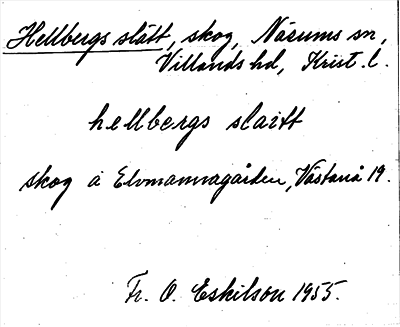 Hellbergs slätt, skog, Näsums sn,
Villands hd, Krist. l.
hellbergs slaitt
skog å Elvmannagården, Västanå 19.
Fr. O. Eskilson 1955.